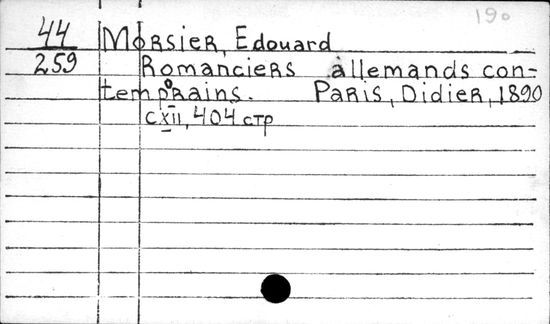 190
44 Morsier, Edouard
259 Romanciers allemands con-
temporains. Paris, Didier, 1890
cXII, 404 стр